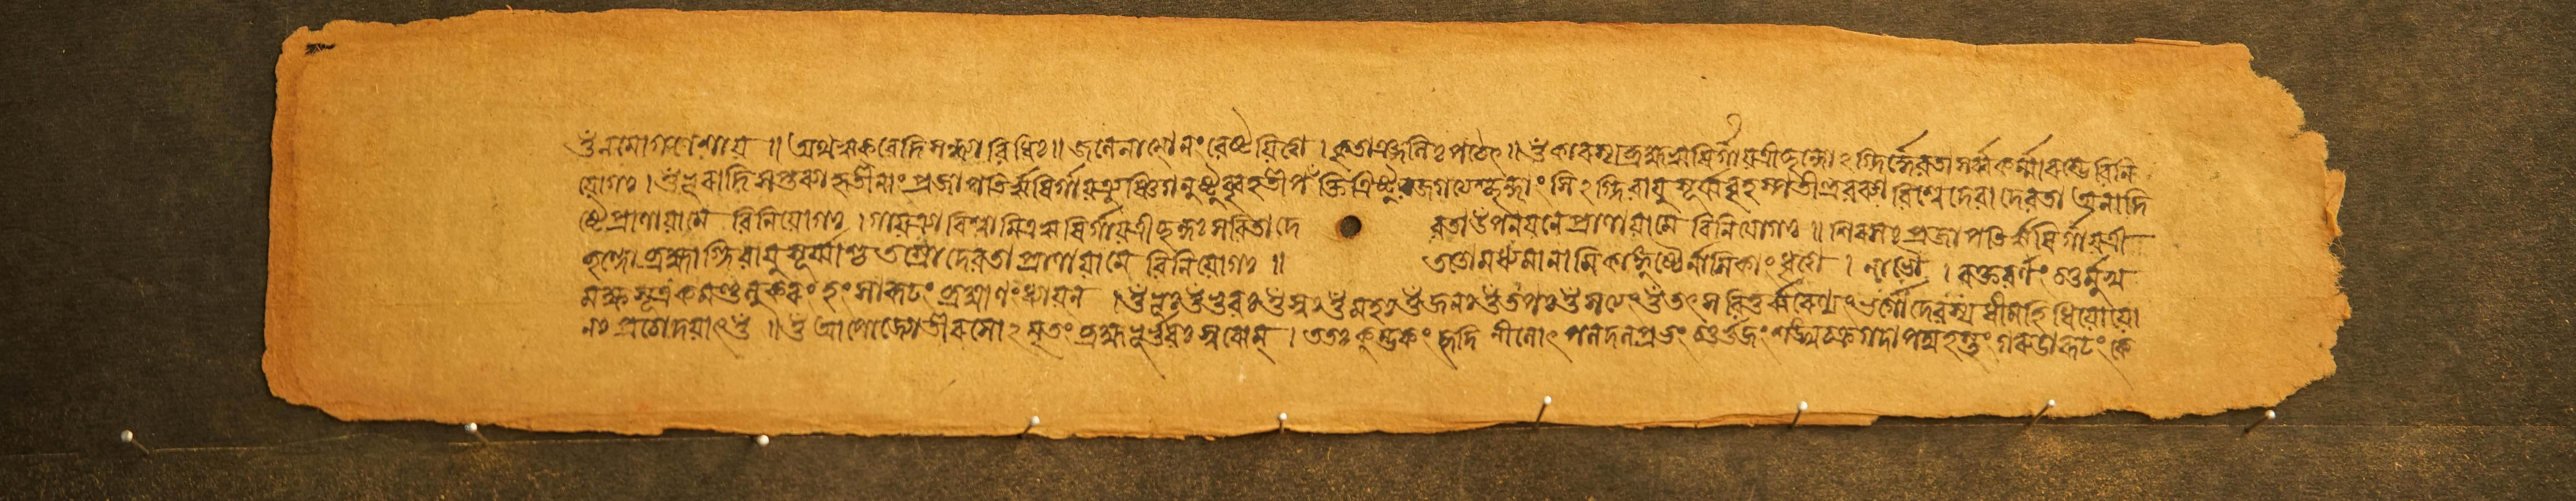 ওঁ নমো গণেশায় ॥ অথ ঋগ্বেদি সন্ধ্যা বিধিঃ ॥ জলেনাত্মানং বেষ্টয়িত্বা । কৃতাঞ্জলিঃ পঠেৎ ॥ ওঁকারস্য ব্রহ্মঋষির্গায়ত্রীচ্ছন্দোঽগ্নির্দ্দেবতা সর্ব্বকর্ম্মারম্ভে বিনি
য়োগঃ । ওঁ ভূরাদি সপ্তব্যাহৃতীনাং প্রজাপতির্ঋষির্গায়ত্র্যুষ্ণিগনুষ্টুব্বৃহতীপংক্তিত্রিষ্টুব্জগত্যশ্ছন্দাংসি ঽগ্নিবায়ুসূর্য্যবৃহস্পতীন্দ্রবরুণ বিশ্বেদেবা দেবতা অনাদি
ষ্টে প্রাণায়ামে বিনিয়োগঃ । গায়ত্র্যা বিশ্বামিত্রঋষির্গায়ত্রীচ্ছন্দঃ সবিতা দে বতা উপনয়নে প্রাণায়ামে বিনিয়োগঃ ॥ শিরসঃ প্রজাপতির্ঋষির্গায়ত্রী
চ্ছন্দো ব্রহ্মাগ্নিবায়ুসূর্য্যাশ্চতস্রো দেবতা প্রাণায়ামে বিনিয়োগঃ ॥ ততো মধ্যমানামিকাঙ্গুষ্ঠৈর্নাসিকাং ধৃত্বা । নাভৌ । রক্তবর্ণং চতুর্মুখ
মক্ষসূত্রকমণ্ডলুকরং হংসারূঢ়ং ব্রহ্মাণং ধ্যায়ন । ওঁ ভূঃ ওঁ ভুবঃ ওঁ স্বঃ ওঁ মহঃ ওঁ জনঃ ওঁ তপঃ ওঁ সত্যং ওঁ তৎ সবিতুর্ব্বরেণ্যং ভর্গো দেবস্য ধীমহি ধিয়ো য়ো
নঃ প্রচোদয়াৎ ওঁ ॥ ওঁ আপোজ্যোতীরসোঽমৃতং ব্রহ্ম ভূর্ভুবঃ স্বরোম্ । ততঃ কুম্ভকং হৃদি নীলোৎপলদলপ্রভং চতুর্ভুজং শঙ্খচক্রগদাপদ্মহস্তং গরুড়ারূঢ়ং কে